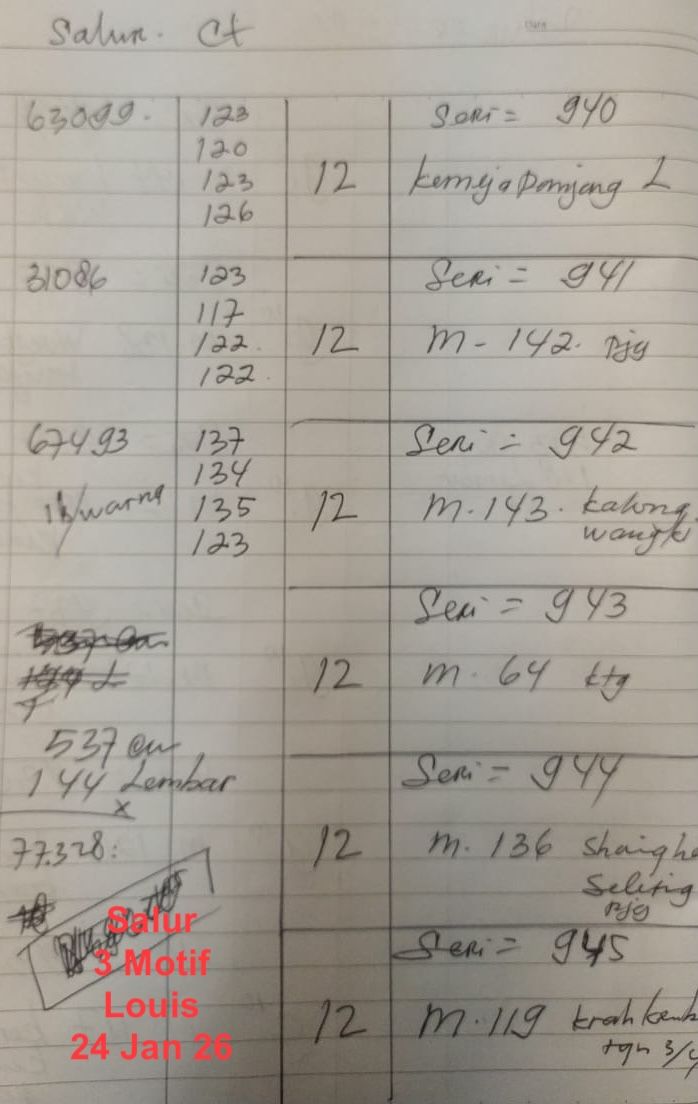 Salur. Ct
63099. 123 Seri = 940
120
123 12 kemeja Panjang L
126
31086 123 Seri = 941
117
122. 12 M - 142. Pjg
122.
67493 137 Seri = 942
134
/warna 135 12 M. 143. kalong
123 wangki
Seri = 943
12 M. 64 ktg
537 cm
144 Lembar Seri = 944
x
77.328: 12 M. 136 Shangha
Seleting
Pjg
Salur
3 Motif
Louis
24 Jan 26
Seri = 945
12 M. 119 krah
tgn 3/4